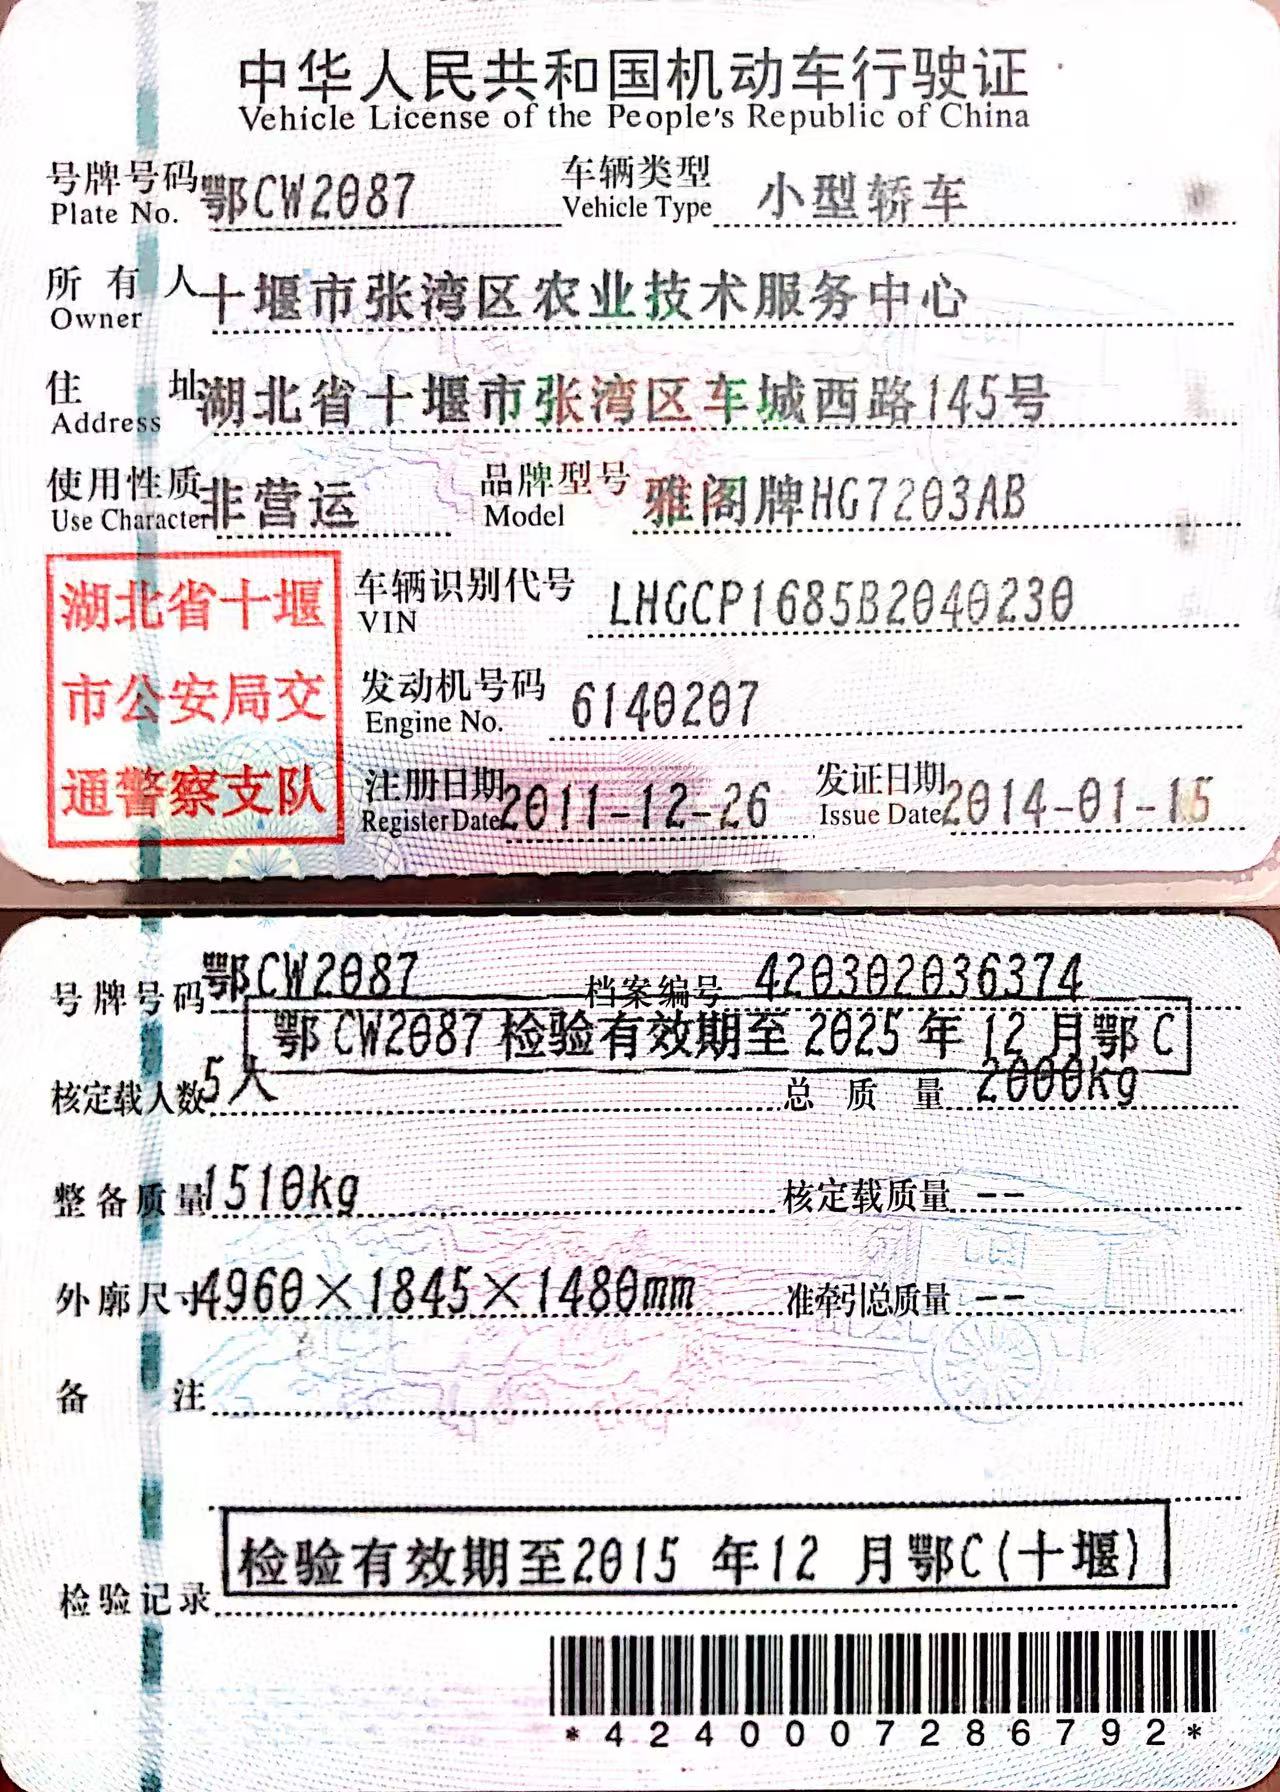 中华人民共和国机动车行驶证
Vehicle License of the People's Republic of China
号牌号码 鄂CW2087 车辆类型 小型轿车
Plate No. Vehicle Type
所有人 十堰市张湾区农业技术服务中心
Owner
住址 湖北省十堰市张湾区车城西路145号
Address
使用性质 非营运 品牌型号 雅阁牌HG7203AB
Use Character Model
湖北省十堰
市公安局交
通警察支队
车辆识别代号 LHGCP1685B2040230
VIN
发动机号码 6140207
Engine No.
注册日期 2011-12-26 发证日期 2014-01-15
Register Date Issue Date
号牌号码 鄂CW2087 档案编号 420302036374
鄂CW2087检验有效期至2025年12月鄂C
核定载人数 5人 总质量 2000kg
整备质量 1510kg 核定载质量 --
外廓尺寸 4960×1845×1480mm 准牵引总质量 --
备注
检验有效期至2015 年12 月鄂C(十堰)
检验记录
*4240007286792*